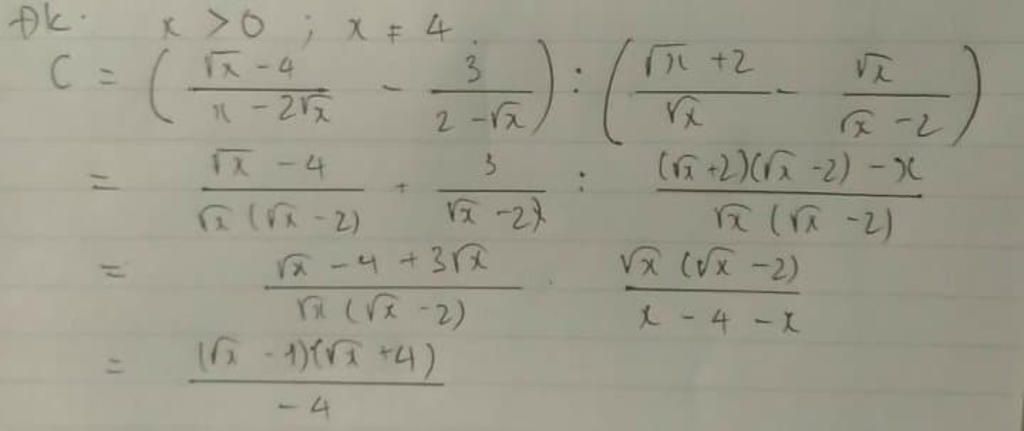 Đk: x > 0 ; x ≠ 4.
C = ( (√x - 4)/(x - 2√x) - 3/(2 - √x) ) : ( (√x + 2)/√x - √x/(√x - 2) )
= (√x - 4)/(√x (√x - 2)) + 3/(√x - 2) : ((√x + 2)(√x - 2) - x)/(√x (√x - 2))
= (√x - 4 + 3√x)/(√x (√x - 2)) . (√x (√x - 2))/(x - 4 - x)
= ((√x - 1)(√x + 4))/(-4)